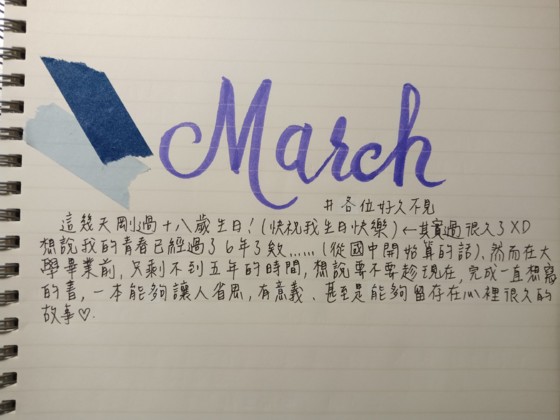 March
#各位好久不見
這幾天剛過十八歲生日!(快祝我生日快樂)←其實過很久了XD
想說我的青春已經過了6年了欸......(從國中開始算的話)、然而在大
學畢業前,只剩不到五年的時間,想說要不要趁現在,完成一直想寫
的書,一本能夠讓人省思,有意義、甚至是能夠留存在心裡很久的
故事♡.